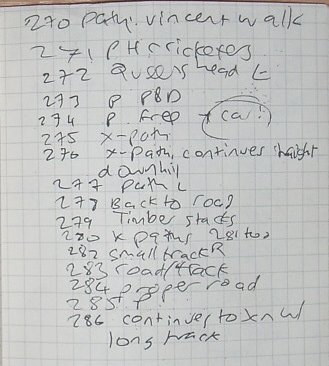 270 Path. vincent walk
271 PH cricketers
272 Queens head L
273 P PBD
274 P. Frep + car!
275 X-path
276 X-path, continues straight
downhill
277 path L
278 Back to road
279 Timber stacks
280 X paths 281 too
282 small track R
283 road/track
284 proper road
285 P
286 continues to Xn W
long track